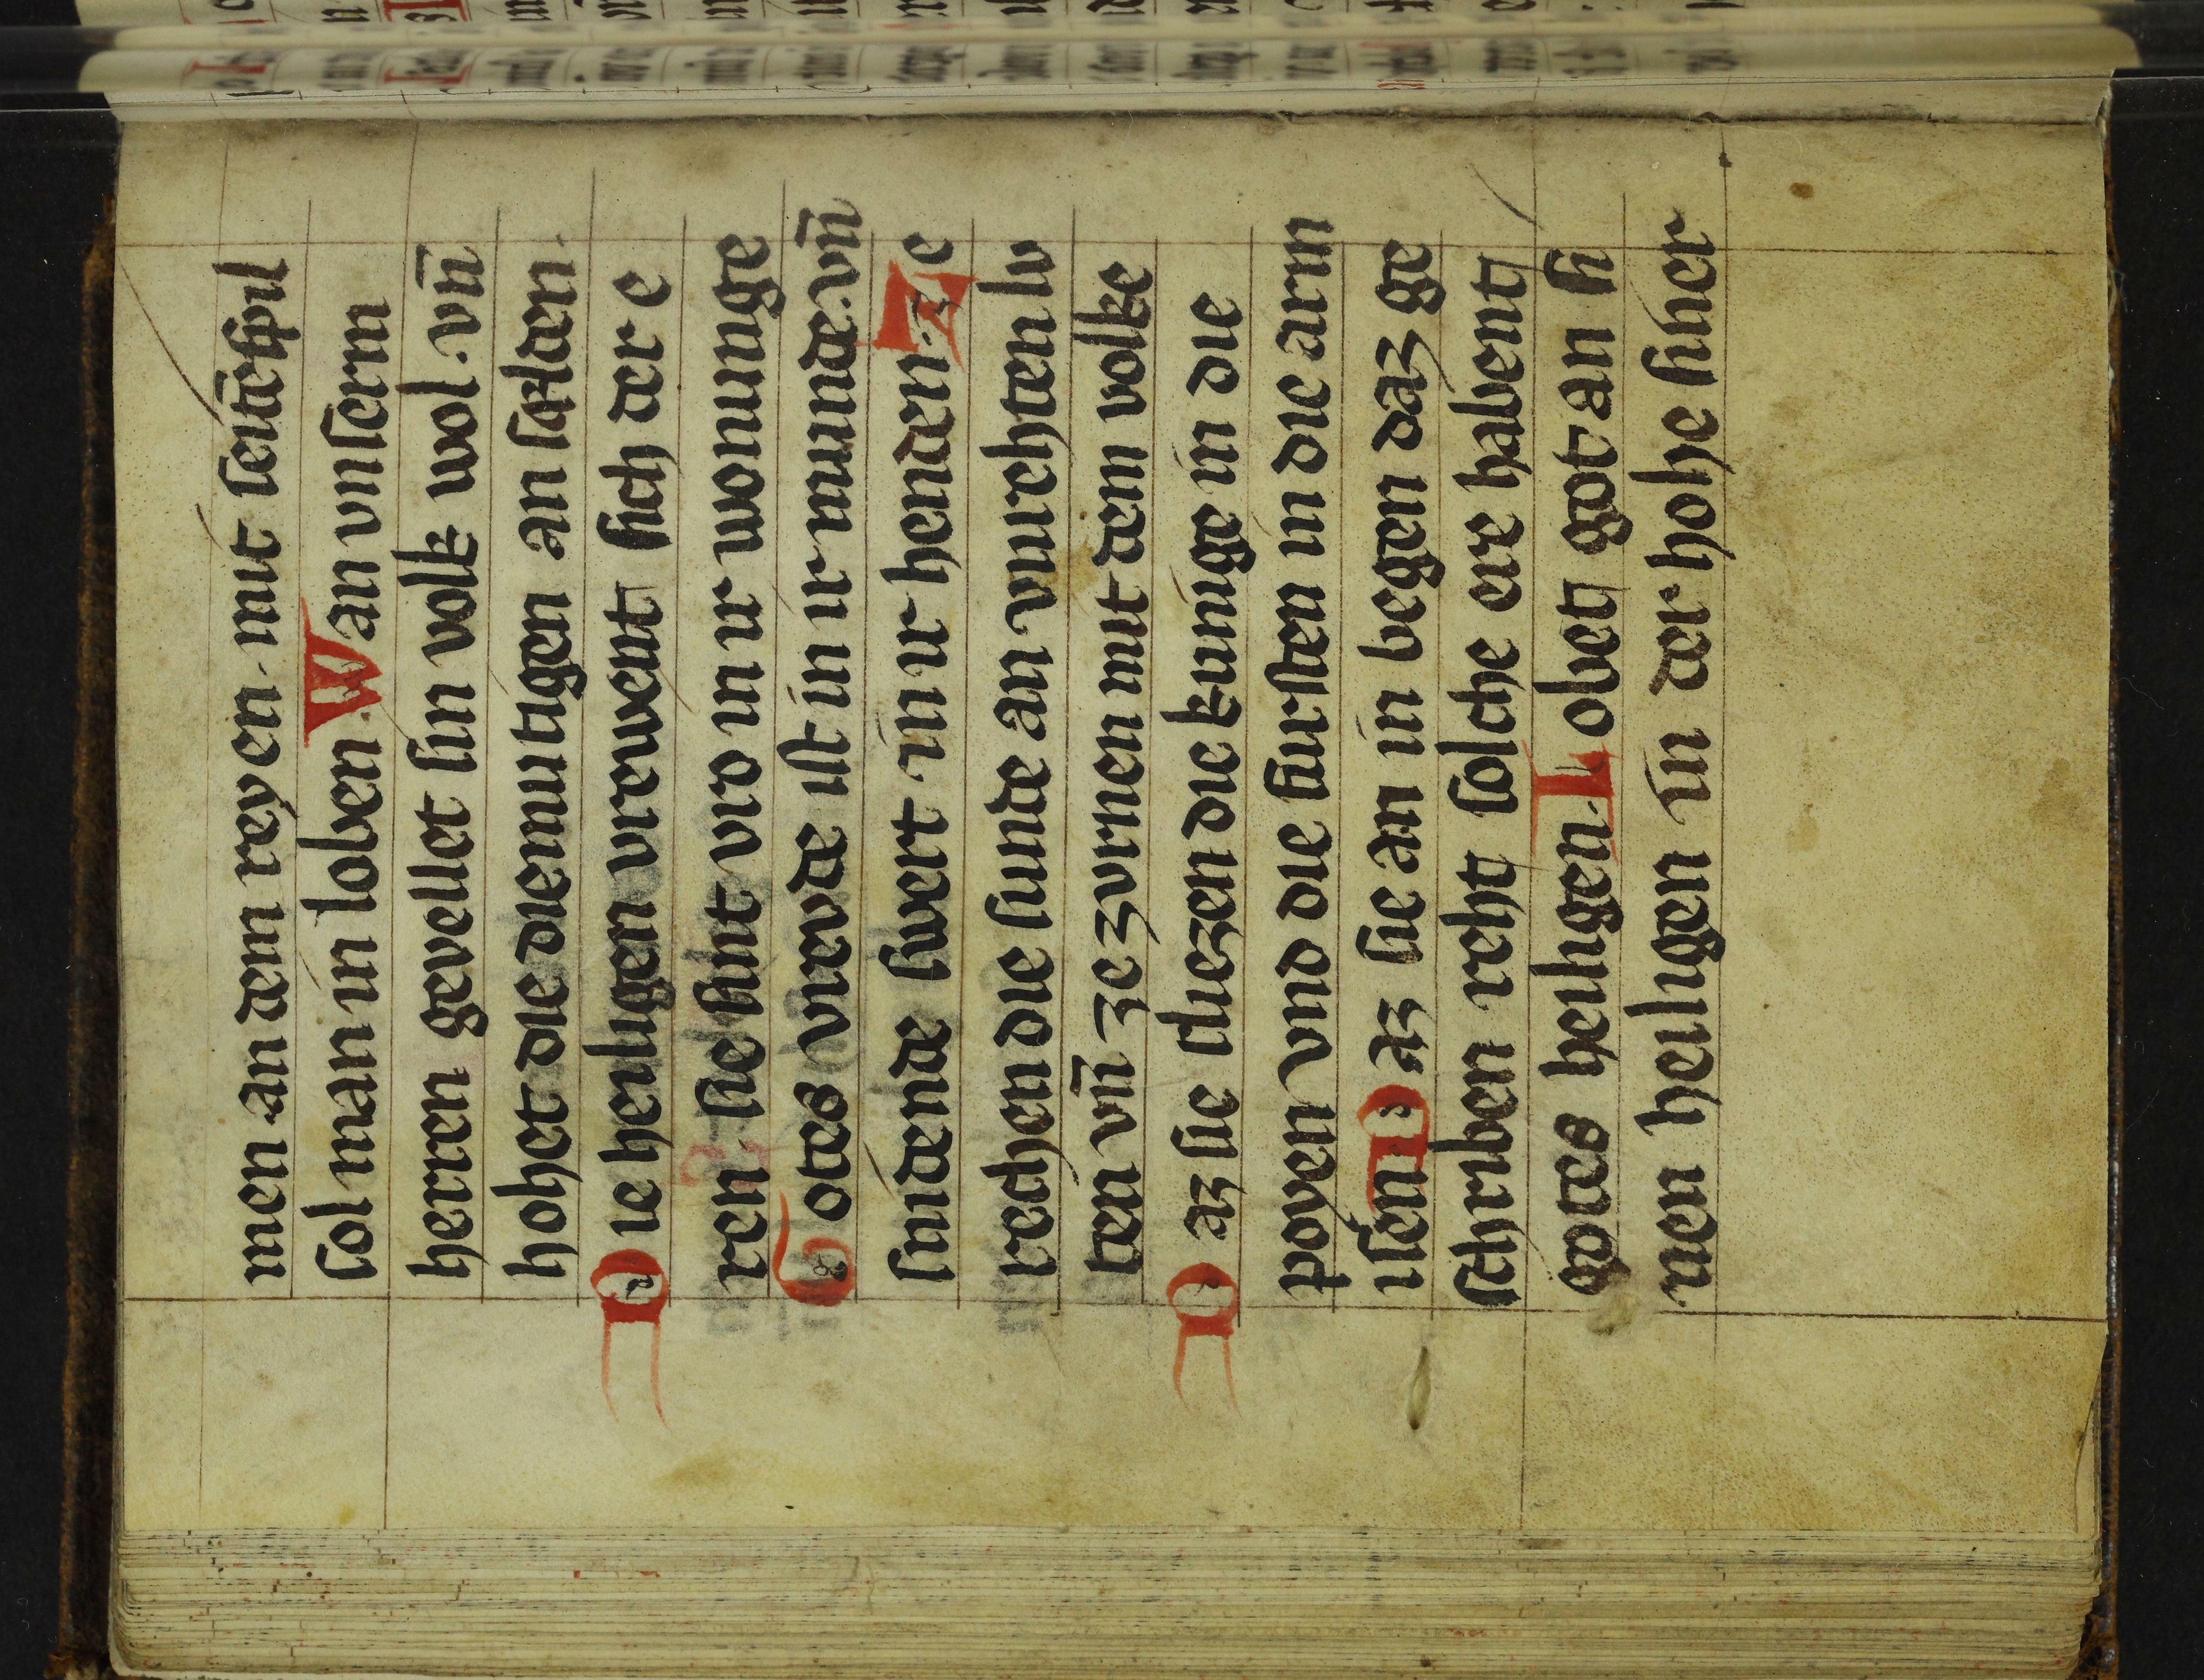 men an dem reyen mit seitẽspil
sol man in loben. Wan vnserm
herren gevellet sin volk wol. vn̄
hohet die diemutigen an selden.
Die heiligen vrewent sich der e
ren. sie sint vro in ir wonunge
Gotes vrevde ist in ir munde. vn̄
snidende swert in ir henden. Ze
rechen die sunde an vnrehten lv
ten vn̄ ze zvrnen mit dem volke
Daz sie sliezen die kunige in die
poyen vnd die fursten in die arm
isen. Daz sie an in begen daz ge
schriben reht solche ere habent
gotes heiligen. Lobet got an si
nen heiligen in der hohe siner